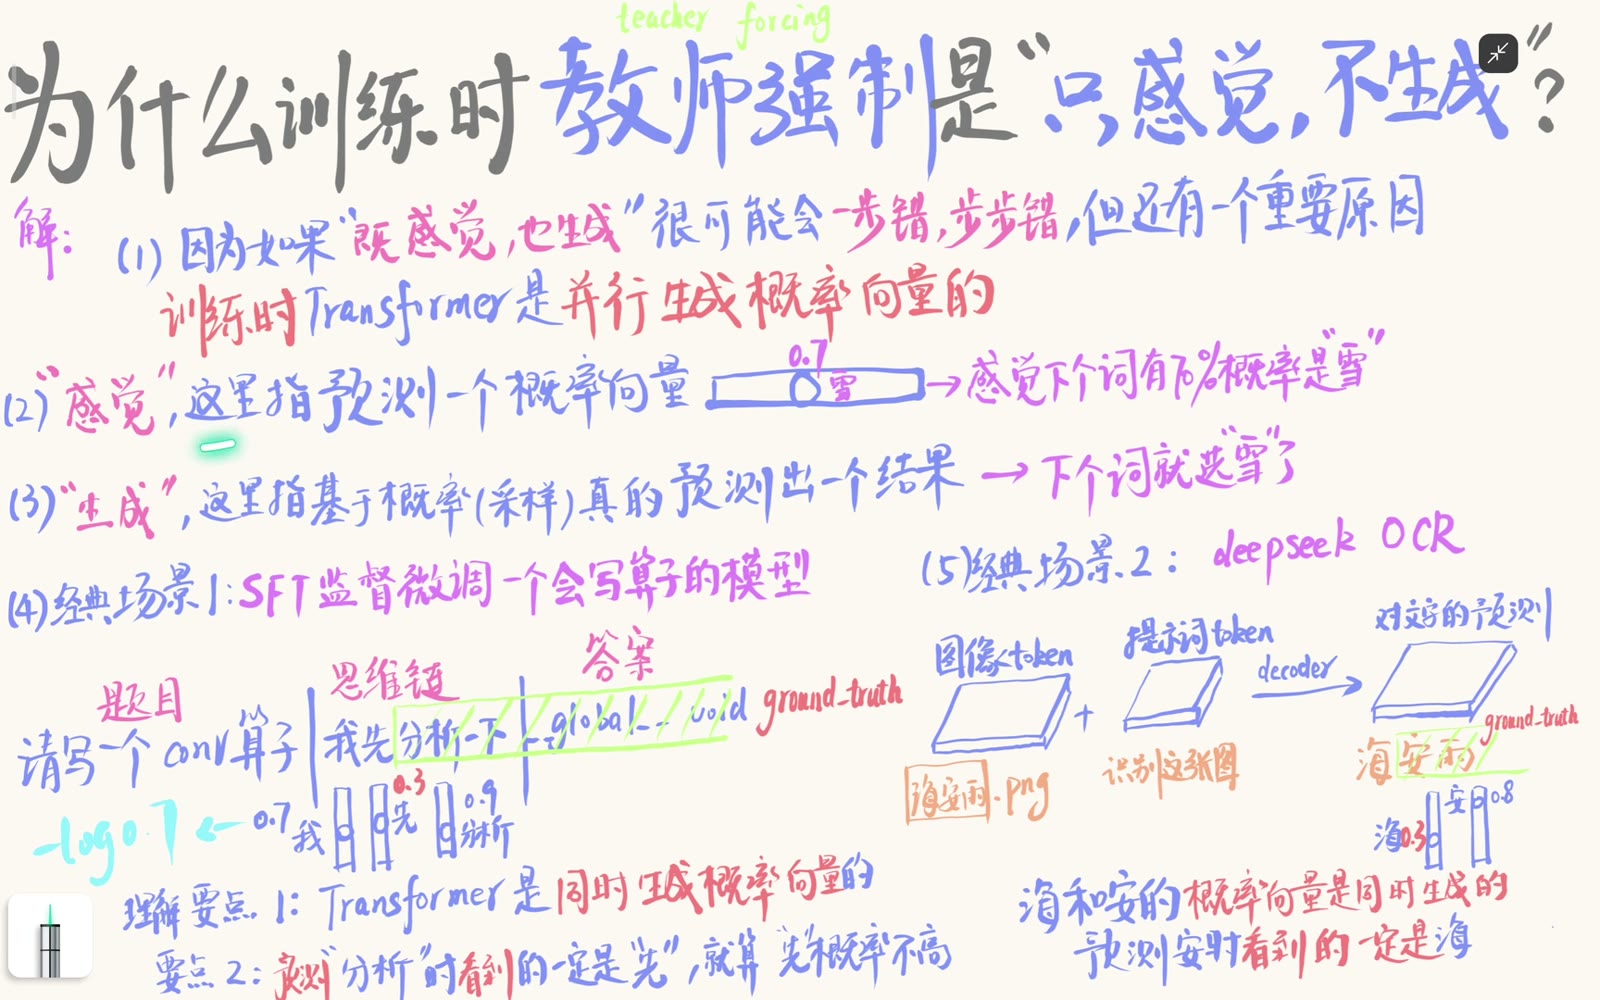 teacher forcing
为什么训练时教师强制是“只感觉,不生成”?
解: (1) 因为如果“既感觉,也生成”很可能会一步错,步步错,但还有一个重要原因
训练时Transformer是并行生成概率向量的
0.7
(2)“感觉”,这里指预测一个概率向量 雪 →感觉下个词有70%概率是“雪”
(3)“生成”,这里指基于概率(采样)真的预测出一个结果 → 下个词就选“雪”了
(4)经典场景1:SFT监督微调一个会写算子的模型
题目 思维链 答案
请写一个conv算子 我先分析一下 __global__ void ground_truth
0.3
-log0.7 ← 0.7我 先 0.9分析
理解要点1: Transformer是同时生成概率向量的
要点2: 预测“分析”时看到的一定是“先”,就算“先”概率不高
(5)经典场景2: deepseek OCR
图像token + 提示词token decoder 对文字的预测
海安雨.png 识别这张图 海安雨 ground_truth
海0.3 安 0.8
海和安的概率向量是同时生成的
预测安时看到的一定是海